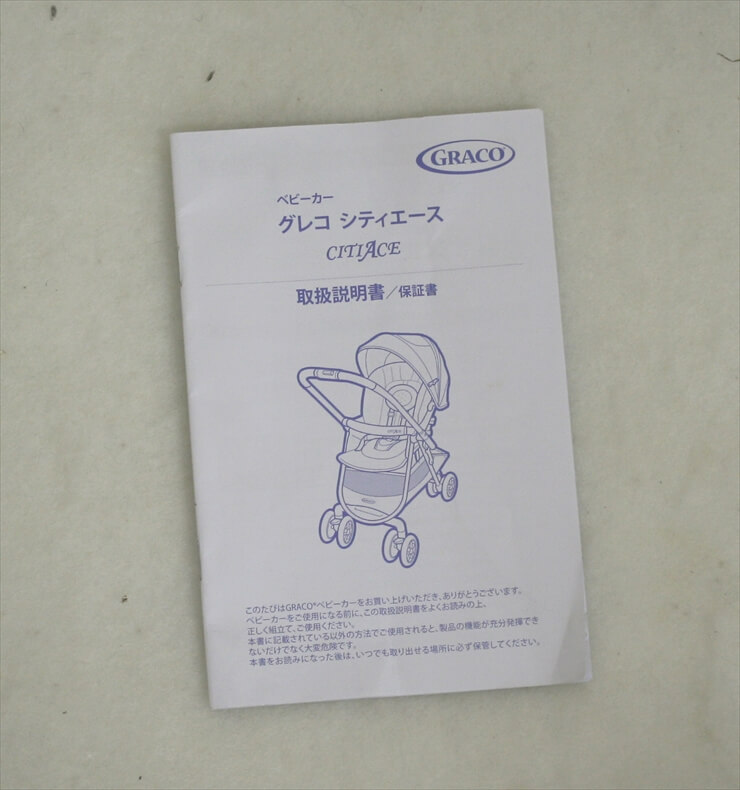 GRACO
ベビーカー
グレコ シティエース
CITIACE
取扱説明書／保証書
このたびはGRACO®ベビーカーをお買い上げいただき、ありがとうございます。
ベビーカーをご使用になる前に、この取扱説明書をよくお読みの上、
正しく組立て、ご使用ください。
本書に記載されている以外の方法でご使用されると、製品の機能が充分発揮でき
ないだけでなく大変危険です。
本書をお読みになった後は、いつでも取り出せる場所に必ず保管してください。